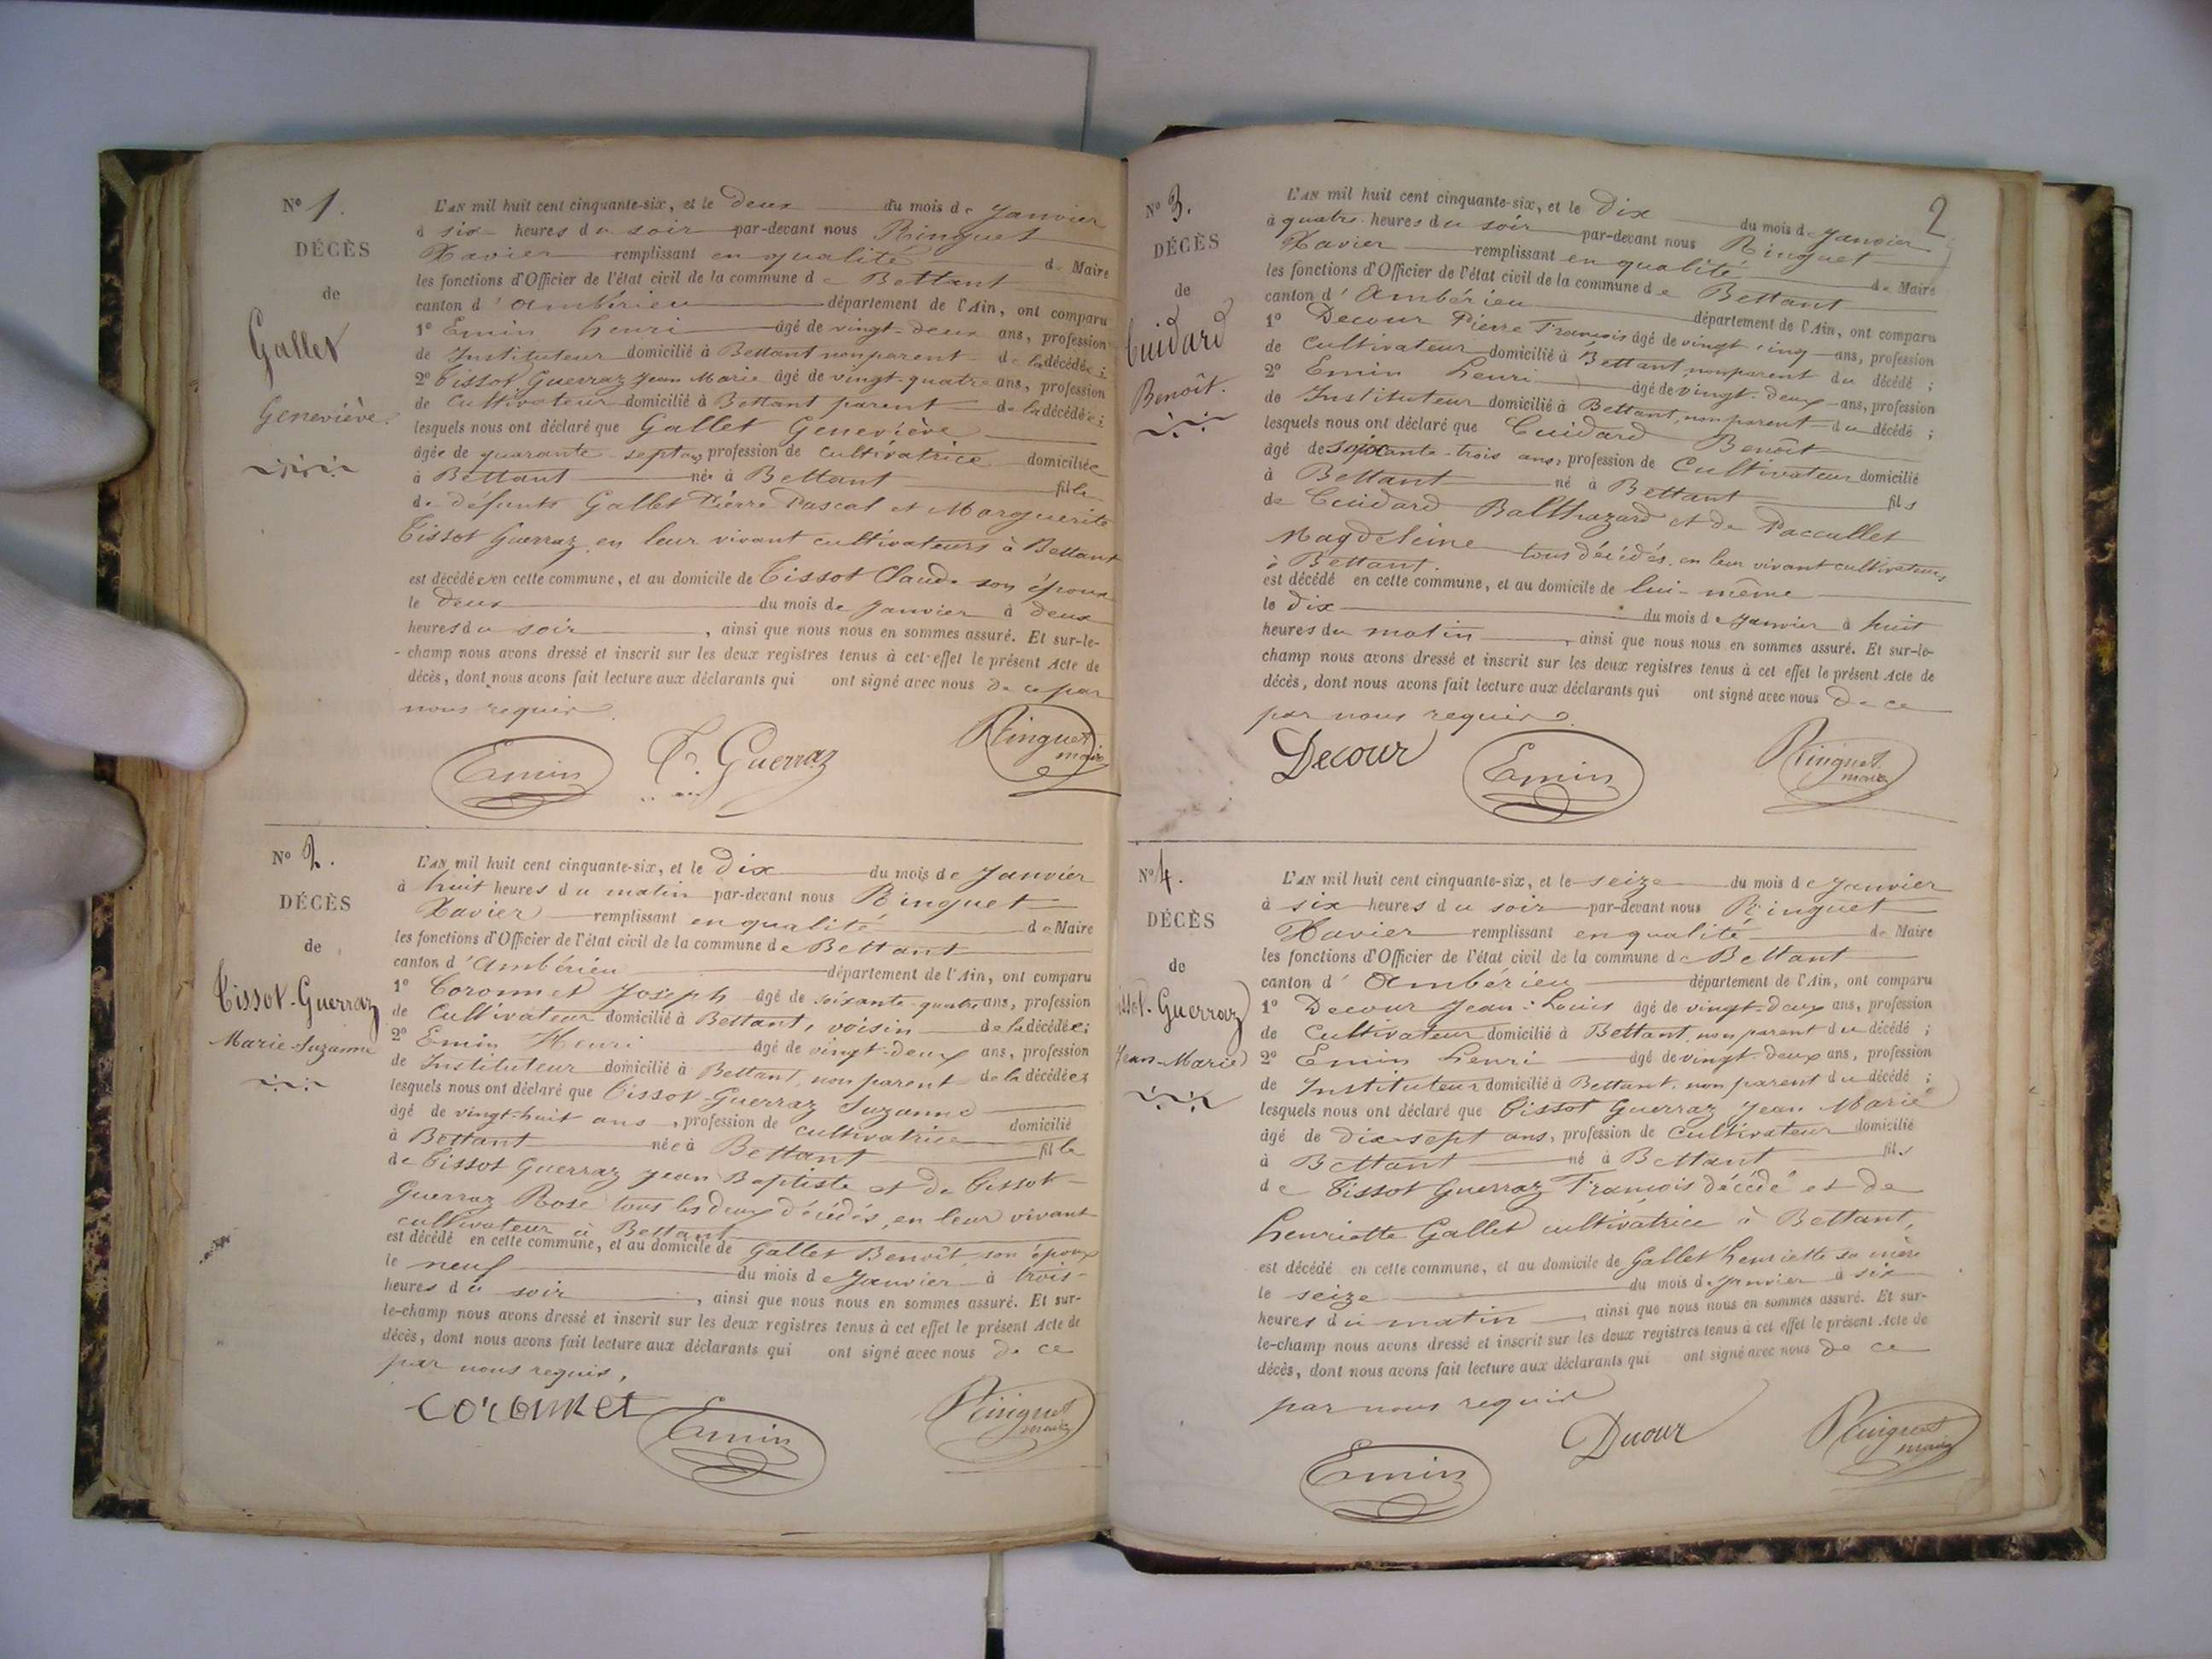 N° 1.
DÉCÈS
de
Gallet
Geneviève.
L'AN mil huit cent cinquante-six, et le deux du mois de Janvier
à six heures du soir par-devant nous Ringuet
Xavier remplissant en qualité de Maire
les fonctions d'Officier de l'état civil de la commune de Bettant
canton d'Ambérieu département de l'Ain, ont comparu
1° Emin henri âgé de vingt-deux ans, profession
de Instituteur domicilié à Bettant non parent de la décédée ;
2° Tissot Guerraz Jean Marie âgé de vingt-quatre ans, profession
de Cultivateur domicilié à Bettant parent de la décédée ;
lesquels nous ont déclaré que Gallet Geneviève
âgée de quarante-sept ans, profession de cultivatrice domiciliée
à Bettant née à Bettant fille
de défunts Gallet Pierre Pascal et Marguerite
Tissot Guerraz, en leur vivant cultivateurs à Bettant
est décédée en cette commune, et au domicile de Tissot Claude son époux
le deux du mois de Janvier à deux
heures du soir, ainsi que nous nous en sommes assuré. Et sur-le-
champ nous avons dressé et inscrit sur les deux registres tenus à cet effet le présent Acte de
décès, dont nous avons fait lecture aux déclarants qui ont signé avec nous de ce par
nous requis.
Emin T. Guerraz Ringuet
maire
N° 2.
DÉCÈS
de
Tissot-Guerraz
Marie-Suzanne
L'AN mil huit cent cinquante-six, et le Dix du mois de Janvier
à huit heures du matin par-devant nous Ringuet
Xavier remplissant en qualité de Maire
les fonctions d'Officier de l'état civil de la commune de Bettant
canton d'Ambérieu département de l'Ain, ont comparu
1° Coronnet Joseph âgé de soixante-quatre ans, profession
de Cultivateur domicilié à Bettant, voisin de la décédée ;
2° Emin Henri âgé de vingt-deux ans, profession
de Instituteur domicilié à Bettant, non parent de la décédée ;
lesquels nous ont déclaré que Tissot-Guerraz Suzanne
âgé de vingt-huit ans, profession de cultivatrice domicilié
à Bettant née à Bettant fille
de Tissot Guerraz Jean Baptiste et de Tissot-
Guerraz Rose tous les deux décédés, en leur vivant
cultivateur à Bettant
est décédé en cette commune, et au domicile de Gallet Benoît son époux
le neuf du mois de Janvier à trois
heures du soir, ainsi que nous nous en sommes assuré. Et sur-
le-champ nous avons dressé et inscrit sur les deux registres tenus à cet effet le présent Acte de
décès, dont nous avons fait lecture aux déclarants qui ont signé avec nous de ce
par nous requis,
Coronnet Emin Ringuet
maire
2
N° 3.
DÉCÈS
de
Cuidard
Benoît.
L'AN mil huit cent cinquante-six, et le Dix du mois de Janvier
à quatre heures du soir par-devant nous Ringuet
Xavier remplissant en qualité de Maire
les fonctions d'Officier de l'état civil de la commune de Bettant
canton d'Ambérieu département de l'Ain, ont comparu
1° Decour Pierre François âgé de vingt cinq ans, profession
de Cultivateur domicilié à Bettant, non parent du décédé ;
2° Emin henri âgé de vingt-deux ans, profession
de Instituteur domicilié à Bettant, non parent du décédé ;
lesquels nous ont déclaré que Cuidard Benoît
âgé de soixante-trois ans, profession de Cultivateur domicilié
à Bettant né à Bettant fils
de Cuidard Balthazard et de Paccallet
Magdeleine tous décédés, en leur vivant cultivateurs
à Bettant.
est décédé en cette commune, et au domicile de lui-même
le dix du mois de Janvier à huit
heures du matin, ainsi que nous nous en sommes assuré. Et sur-le-
champ nous avons dressé et inscrit sur les deux registres tenus à cet effet le présent Acte de
décès, dont nous avons fait lecture aux déclarants qui ont signé avec nous de ce
par nous requis.
Decour Emin Ringuet
maire
N° 4.
DÉCÈS
de
issot-Guerraz
Jean-Marie
L'AN mil huit cent cinquante-six, et le seize du mois de Janvier
à six heures du soir par-devant nous Ringuet
Xavier remplissant en qualité de Maire
les fonctions d'Officier de l'état civil de la commune de Bettant
canton d'Ambérieu département de l'Ain, ont comparu
1° Decour Jean-Louis âgé de vingt-deux ans, profession
de Cultivateur domicilié à Bettant, non parent du décédé ;
2° Emin henri âgé de vingt-deux ans, profession
de Instituteur domicilié à Bettant, non parent du décédé ;
lesquels nous ont déclaré que Tissot Guerraz Jean Marie
âgé de dix-sept ans, profession de Cultivateur domicilié
à Bettant né à Bettant fils
de Tissot Guerraz François décédé et de
henriette Gallet cultivatrice à Bettant,
est décédé en cette commune, et au domicile de Gallet henriette sa mère
le seize du mois de Janvier à six
heures du matin, ainsi que nous nous en sommes assuré. Et sur-
le-champ nous avons dressé et inscrit sur les deux registres tenus à cet effet le présent Acte de
décès, dont nous avons fait lecture aux déclarants qui ont signé avec nous de ce
par nous requis
Emin Decour Ringuet
maire